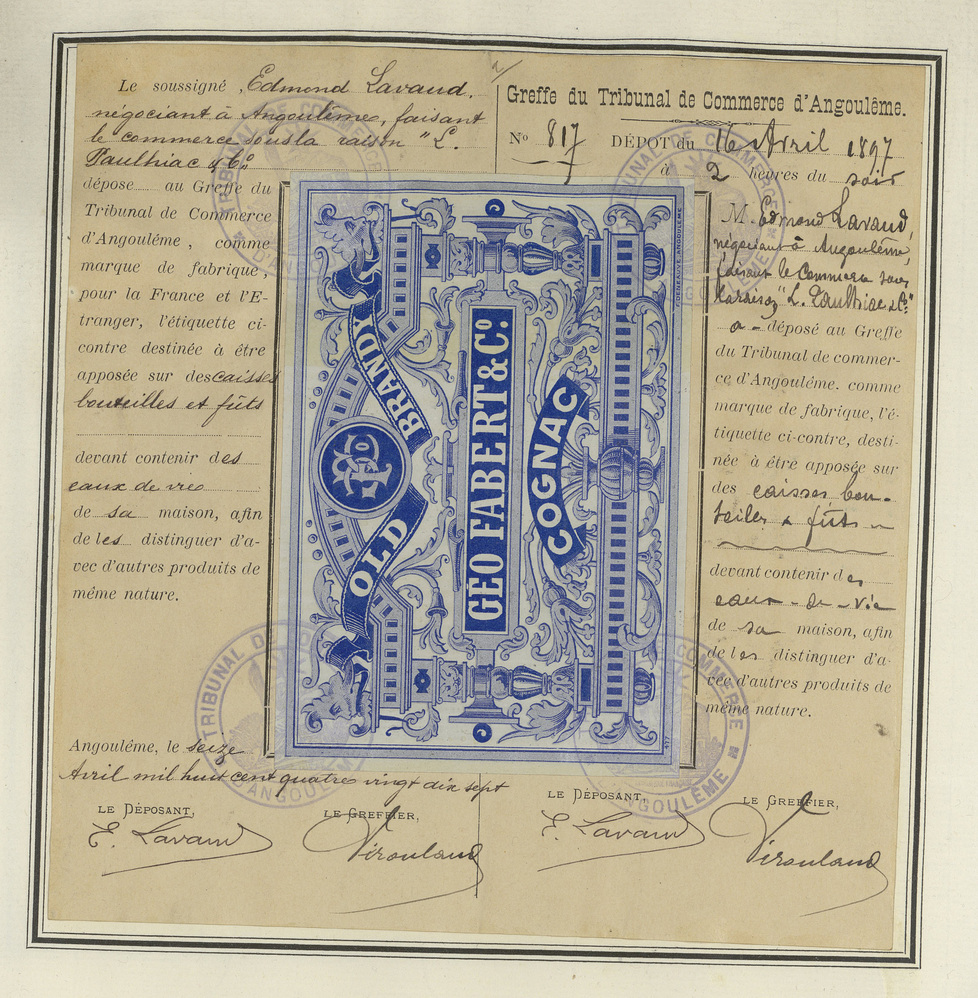 Le soussigné, Edmond Lavaud.
négociant à Angoulême, faisant
le commerce sous la raison "L.
Paulhiac & Cº
dépose au Greffe du
Tribunal de Commerce
d'Angoulême, comme
marque de fabrique,
pour la France et l'E-
tranger, l'étiquette ci-
contre destinée à être
apposée sur des caisses
bouteilles et fûts
devant contenir des
eaux de vie
de sa maison, afin
de les distinguer d'a-
vec d'autres produits de
même nature.
Angoulême, le seize
Avril mil huit cent quatre vingt dix sept
LE DÉPOSANT,
E. Lavaud
LE GREFFIER,
Greffe du Tribunal de Commerce d'Angoulême.
Nº 817 DÉPOT du 16 Avril 1897
à 2 heures du soir
M. Edmond Lavaud,
négociant à Angoulême,
faisant le Commerce sous
la raison "L. Paulhiac & Cº"
a déposé au Greffe
du Tribunal de commer-
ce d'Angoulême. comme
marque de fabrique, l'é-
tiquette ci-contre, desti-
née à être apposée sur
des caisses bou-
teilles & fûts
devant contenir des
eaux-de-vie
de sa maison, afin
de les distinguer d'a-
vec d'autres produits de
même nature.
LE DÉPOSANT,
E. Lavaud
LE GREFFIER,
OLD BRANDY
GEO FABERT & Cº.
COGNAC
477
TRIBUNAL DE COMMERCE
D'ANGOULÊME
TRIBUNAL DE COMMERCE
ANGOULÊME
TRIBUNAL DE
D'ANGOULÊME
COMMERCE
ANGOULÊME